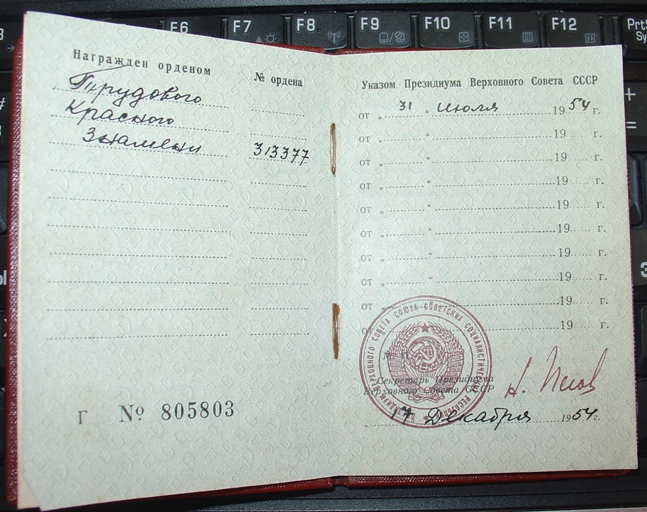 F6 F7 F8 F9 F10 F11 F12 PrtS
Награжден орденом № ордена
Трудового
Красного
Знамени 313377
Г № 805803
Указом Президиума Верховного Совета СССР
от „ 31 “ июля 1954 г.
от „ “ 19 г.
от „ “ 19 г.
от „ “ 19 г.
от „ “ 19 г.
от „ “ 19 г.
от „ “ 19 г.
от „ “ 19 г.
от „ “ 19 г.
от 19 г.
Секретарь Президиума
Верховного Совета СССР
17 Декабря 1954 г.